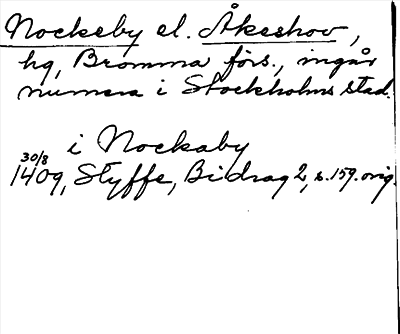 Nockeby el. Åkeshov,
hg, Bromma förs., ingår
numera i Stockholms stad.
i Nockaby
30/8
1409, Styffe, Bidrag 2, s. 159. orig.